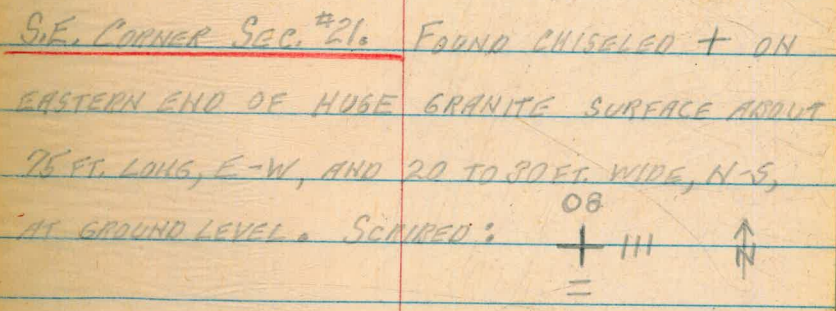 S.E. CORNER SEC. #21. FOUND CHISELED + ON
EASTERN END OF HUGE GRANITE SURFACE ABOUT
75 FT. LONG, E-W, AND 20 TO 30 FT. WIDE, N-S,
AT GROUND LEVEL. SCRIBED:
08
+ III
=
N